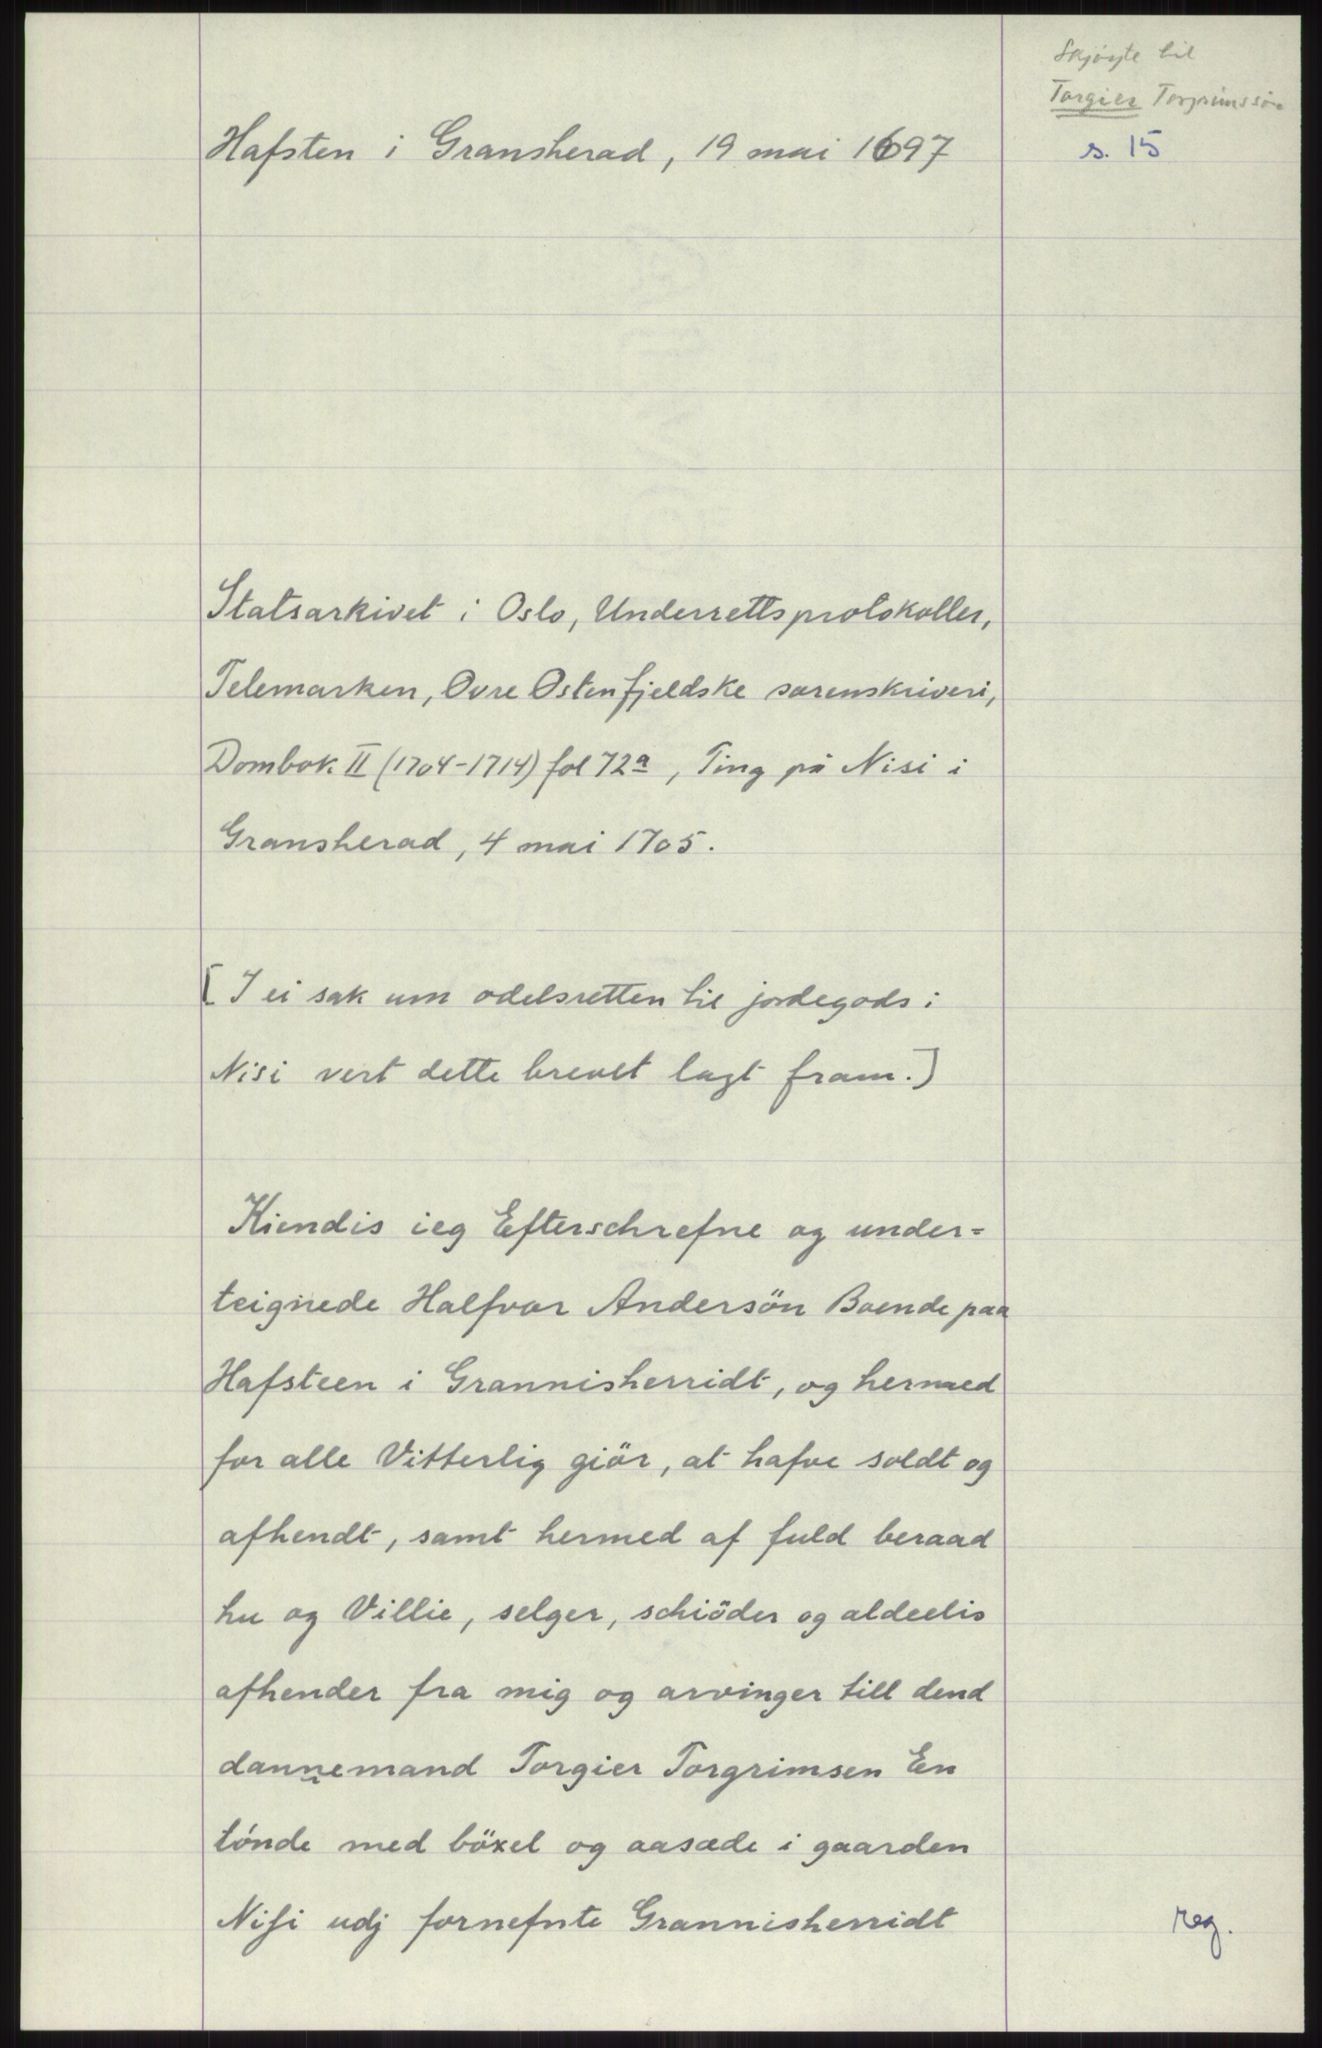 Skjøyte til
Torgier Torgrimssøn
Hafsten i Gransherad, 19 mai 1697
s. 15
Statsarkivet i Oslo, Underrettsprotokoller,
Telemarken, Øvre Østenfjeldske sorenskriveri,
Dombok II (1704-1714) fol 72a, Ting på Nisi i
Gransherad, 4 mai 1705.
[I ei sak um odelsretten til jordegods i
Nisi vert dette brevet lagt fram.]
Kiendis ieg Efterschrefne og under=
teignede Halfvor Andersön Boende paa
Hafsteen i Grannisherridt, og hermed
for alle Vitterlig giör, at hafve soldt og
afhendt, samt hermed af fuld beraad
hu og Villie, selger, schiöder og aldeelis
afhender fra mig og arvinger till dend
dannemand Torgier Torgrimsen En
tönde med böxel og aasæde i gaarden
Nisi udj fornefnte Grannisherridt
reg.